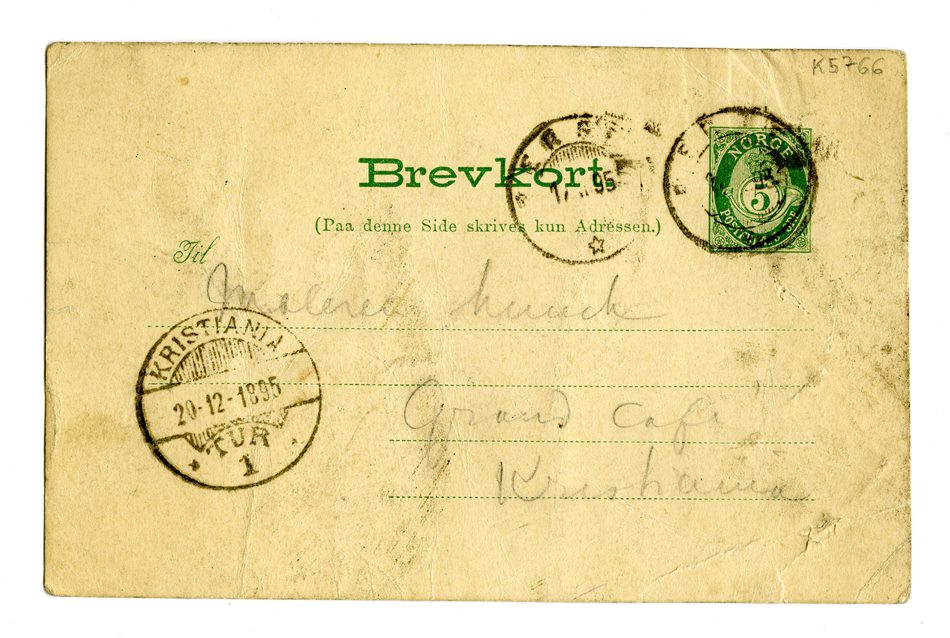 K5766
NORGE
5
Brevkort.
95
(Paa denne Side skrives kun Adressen.)
Til
Maleren Munch
KRISTIANIA
20-12-1895
TUR
1
Grand Café
Kristiania